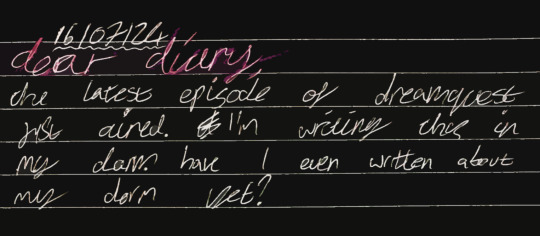 16/07/24
dear diary
the latest episode of dreamquest
just aired. I'm writing this in
my dorm. have I even written about
my dorm yet?